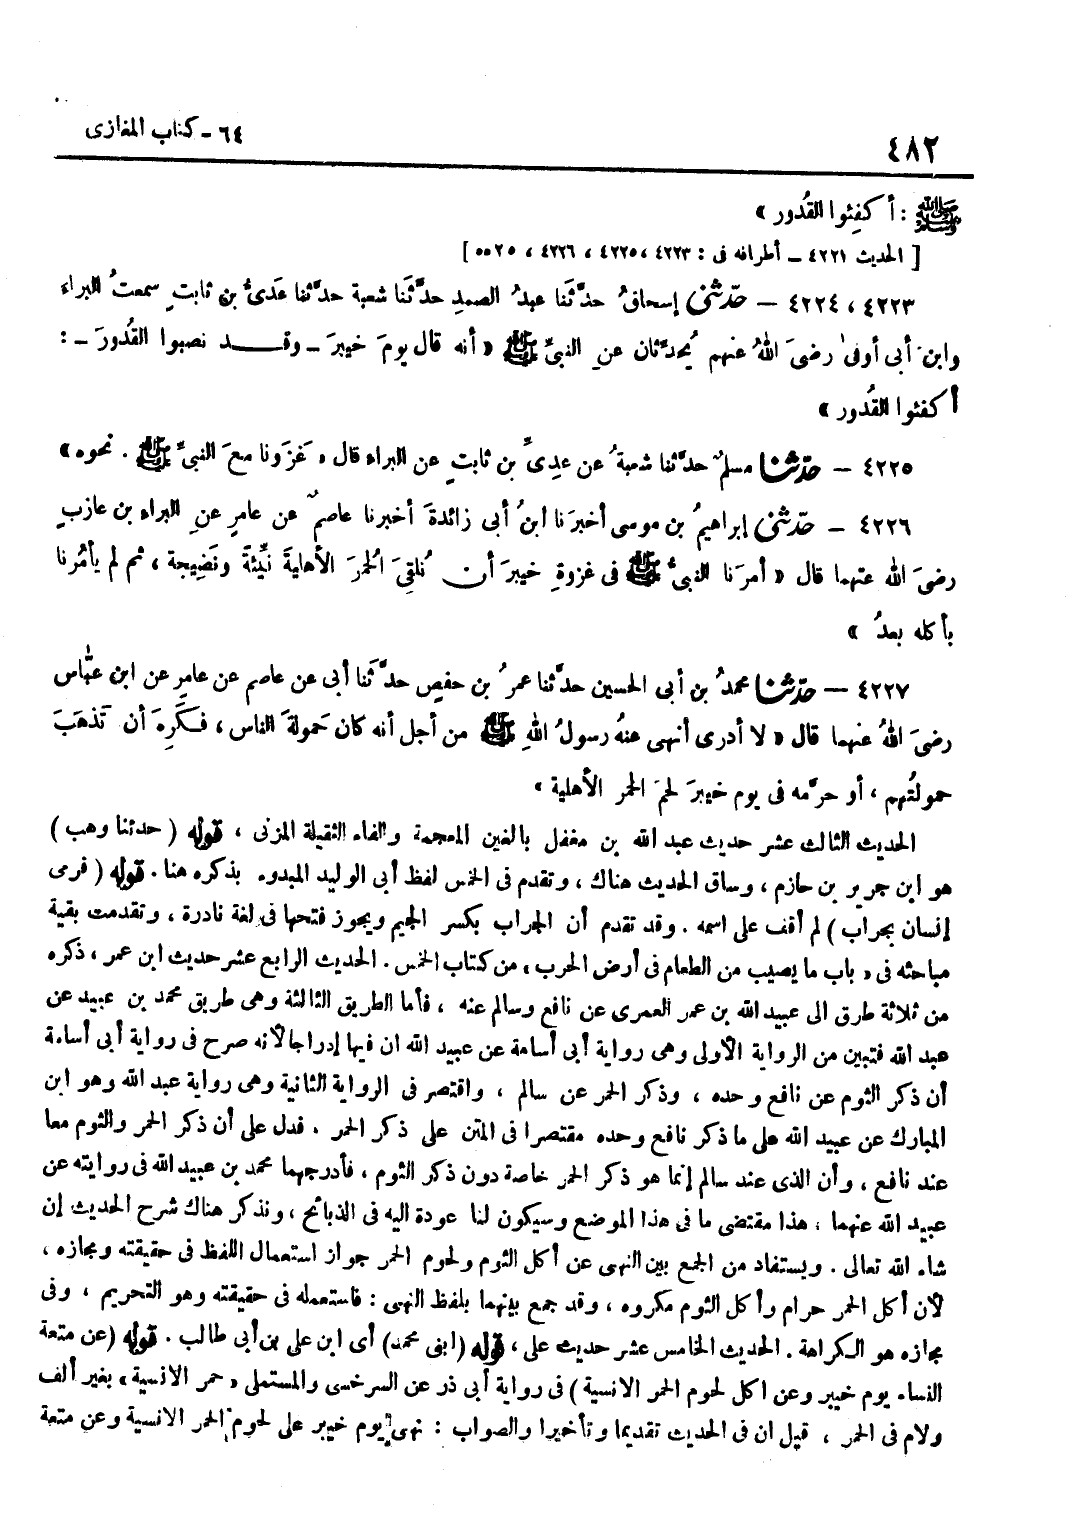 ٤٨٢
٦٤ - كتاب المغازى
ﷺ : أكفِئوا القُدور »
[ الحديث ٤٢٢١ ــ أطرافه فى : ٤٢٢٣ ، ٤٢٢٥ ، ٤٢٢٦ ، ٥٥٢٥ ]
٤٢٢٣ ، ٤٢٢٤ – حدّثنى إسحاقُ حدَّثَنا عبدُ الصمدِ حدَّثَنا شعبة حدَّثنا عَدىُّ بن ثابتٍ سمعتُ البراء
وابنَ أبى أوفىٰ رضىَ اللهُ عنهم يُحدِّثان عنِ النبىِّ ﷺ « أنه قال يومَ خيبرَ ــ وقــد نصبوا القُدورَ ــ :
أكفئوا القُدور »
٤٢٢٥ – حدّثنا مسلمٌ حدَّثنا شعبةُ عن عدِىِّ بن ثابتٍ عن البراء قال « غَزَونا معَ النبىِّ ﷺ . نحوه »
٤٢٢٦ – حدّثنى إبراهيمُ بن موسى أخبرَنا ابنُ أبى زائدةَ أخبرنا عاصمٌ عن عامرٍ عنِ البراءِ بن عازبٍ
رضىَ الله عنهما قال « أمرَنا النبىُّ ﷺ فى غزوةِ خيبرَ أن نُلقِىَ الحُمرَ الأهليةَ نَيِّئةً ونَضِيجة ، ثم لم يأمُرنا
بأكله بعدُ »
٤٢٢٧ – حدّثنا محمدُ بن أبى الحسين حدَّثنا عمرُ بن حفصٍ حدَّثَنا أبى عن عاصم عن عامرٍ عن ابن عبّاس
رضىَ اللهُ عنهما قال « لا أدرى أنهى عنهُ رسولُ اللهِ ﷺ من أجل أنه كان حَمولةَ الناس ، فكَرِهَ أن تَذهَبَ
حمولتُهم ، أو حرَّمه فى يوم خيبرَ لحمَ الحمر الأهلية »
الحديث الثالث عشر حديث عبد الله بن مغفل بالغين المعجمة والفاء الثقيلة المزنى ، قوله ( حدثنا وهب )
هو ابن جرير بن حازم ، وساق الحديث هناك ، وتقدم فى الخمس لفظ أبى الوليد المبدوء بذكره هنا . قوله ( فرمى
إنسان بجراب ) لم أقف على اسمه . وقد تقدم أن الجراب بكسر الجيم ويجوز فتحها فى لغة نادرة ، وتقدمت بقية
مباحثه فى « باب ما يصيب من الطعام فى أرض الحرب » من كتاب الخمس . الحديث الرابع عشر حديث ابن عمر ، ذكره
من ثلاثة طرق الى عبيد الله بن عمر العمرى عن نافع وسالم عنه ، فأما الطريق الثالثة وهى طريق محمد بن عبيد عن
عبد الله فتبين من الرواية الأولى وهى رواية أبى أسامة عن عبيد الله ان فيها إدراجا لأنه صرح فى رواية أبى أسامة
أن ذكر الثوم عن نافع وحده ، وذكر الحمر عن سالم ، واقتصر فى الرواية الثانية وهى رواية عبد الله وهو ابن
المبارك عن عبيد الله على ما ذكر نافع وحده مقتصرا فى المتن على ذكر الحمر . فدل على أن ذكر الحمر والثوم معا
عند نافع ، وأن الذى عند سالم إنما هو ذكر الحمر خاصة دون ذكر الثوم ، فأدرجهما محمد بن عبيد الله فى روايته عن
عبيد الله عنهما ، هذا مقتضى ما فى هذا الموضع وسيكون لنا عودة اليه فى الذبائح ، ونذكر هناك شرح الحديث إن
شاء الله تعالى . ويستفاد من الجمع بين النهى عن أكل الثوم ولحوم الحمر جواز استعمال اللفظ فى حقيقته ومجازه ،
لأن أكل الحمر حرام وأكل الثوم مكروه ، وقد جمع بينهما بلفظ النهى : فاستعمله فى حقيقته وهو التحريم ، وفى
مجازه هو الكراهة . الحديث الخامس عشر حديث على ، قوله ( ابنى محمد ) أى ابن على بن أبى طالب . قوله ( عن متعة
النساء يوم خيبر وعن اكل لحوم الحمر الانسية ) فى رواية أبى ذر عن السرخسى والمستملى « حمر الانسية » بغير ألف
ولام فى الحمر ، قيل ان فى الحديث تقديما وتأخيرا والصواب : نهى يوم خيبر على لحوم الحمر الانسية وعن متعة